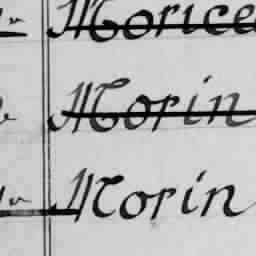 Morice
Morin
Morin